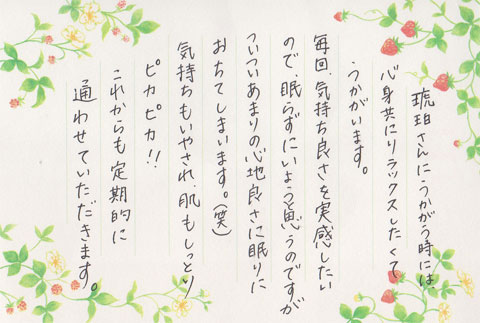 琥珀さんにうかがう時には、
心身共にリラックスしたくて
うかがいます。
毎回、気持ち良さを実感したい
ので、眠らずにいようと思うのですが
ついついあまりの心地良さに眠りに
おちてしまいます。(笑)
気持ちもいやされ、肌もしっとり
ピカピカ!!
これからも定期的に
通わせていただきます。